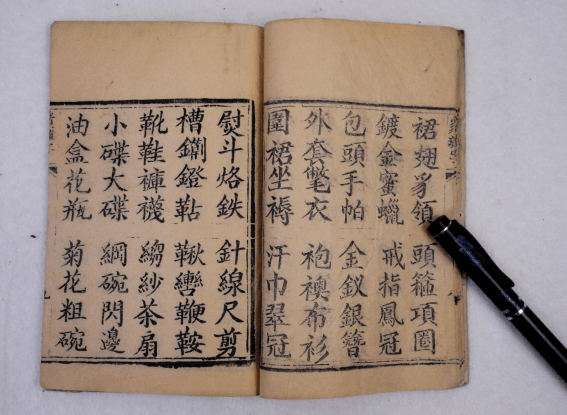 裙翅領 頭箍項圈
鍍金蜜蠟 戒指鳳冠
包頭手帕 金釵銀簪
外套氅衣 袍襖布衫
圍裙坐褥 汗巾翠冠
熨斗烙鉄 針線尺剪
槽鍘鐙 鞦轡鞭鞍
靴鞋褲襪 縐紗茶扇
小碟大碟 綱碗閃邊
油盒花瓶 菊花粗碗